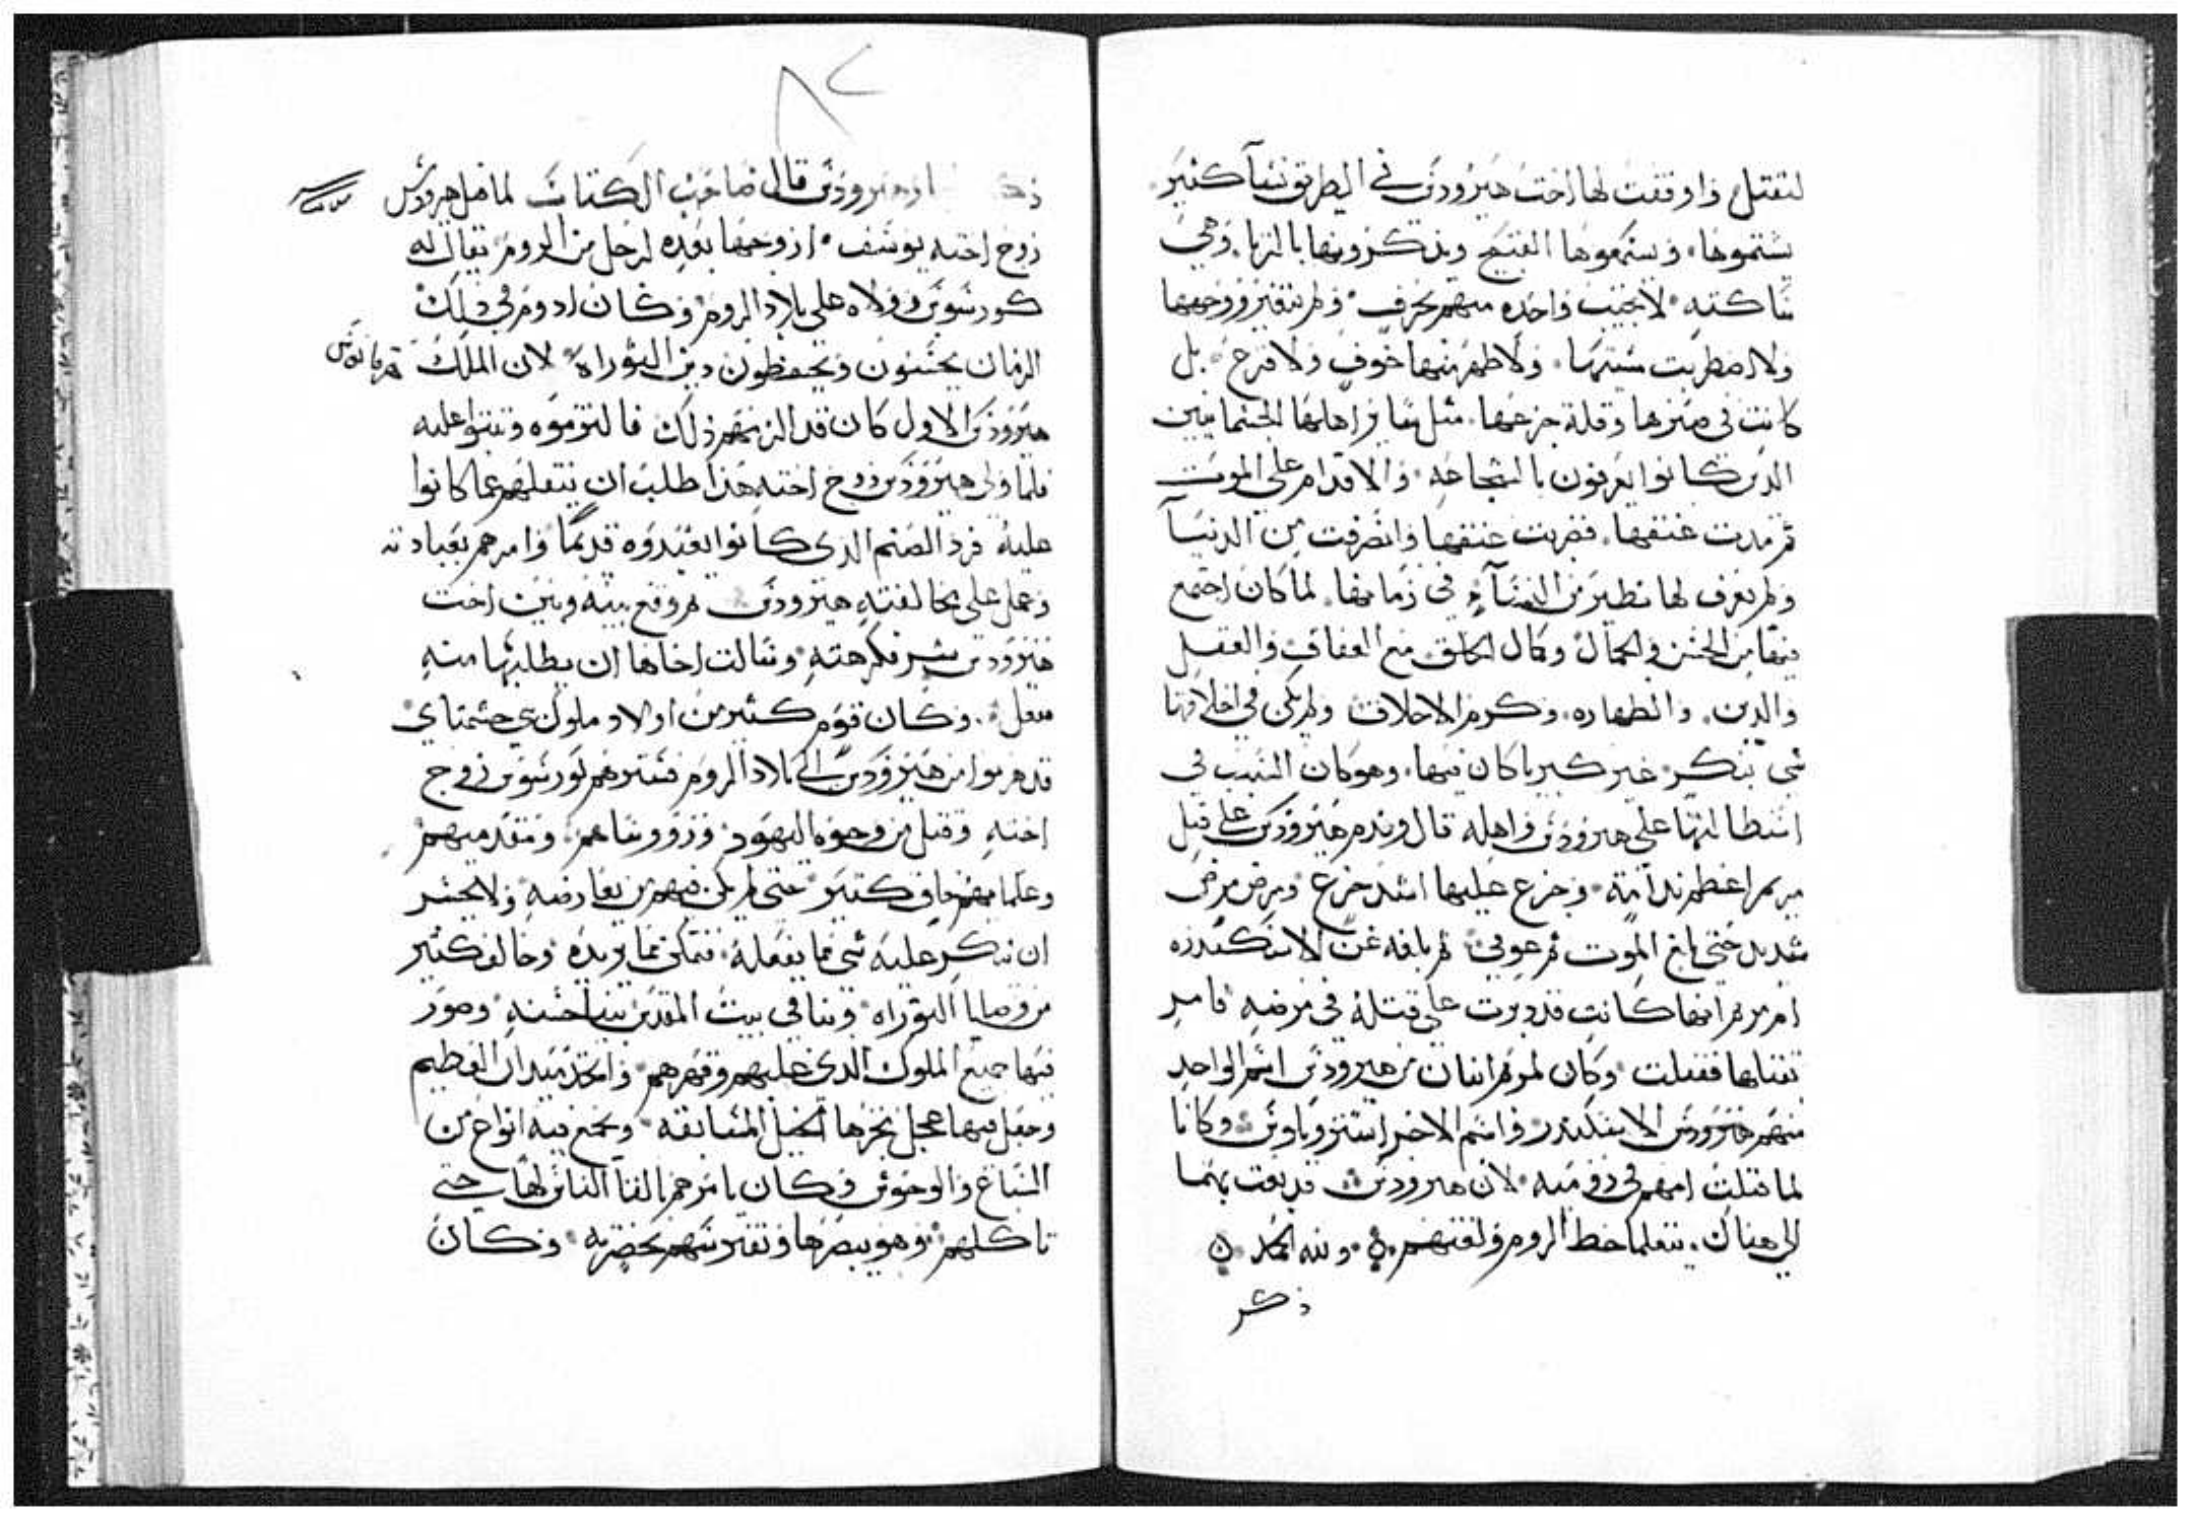 لتقتل واوقفت لها اخت هيرودس في الطريق نسآ كثير
يشتموها وسمعوها القبيح ويذكرونها بالزنا وهي
ساكته لا تجيب واحده منهم بحرف ولم يتغير وجهها
ولا اضطربت مشيتها ولا ظهر منها خوف ولا فزع بل
كانت في صبرها وقلة جزعها مثل ساير اهلها الحشمانيين
الذين كانوا يعرفون بالشجاعه والاقدام على الموت
ثم مدت عنقها فضربت عنقها وانصرفت من الدنيا
ولم يعرف لها نظير من النسآء في زمانها لما كان اجتمع
فيها من الحسن والجمال وكمال الخلق مع العفاف والعقل
والدين والطهاره وكرم الاخلاق ولم يكن في اخلاقها
شي ينكر غير كبر ما كان فيها وهو كان السبب في
استطالتها على هيرودس واهله قال وندم هيرودس على قتل
مريم اعظم ندامة وجزع عليها اشد جزع ومرض مرض
شديد حتى بلغ الموت ثم عوفي ثم بلغه عن الاسكندره
ام مريم انها كانت قد دبرت على قتله في مرضه فامر
بقتلها فقتلت وكان لمريم ابنان من هيرودس اسم الواحد
منهم هيرودس الاسكندر واسم الاخر استروباوس وكانا
لما قتلت امهم في رومية لان هيرودس قد بعث بهما
الى هناك يتعلما خط الروم ولغتهم ولله الحمد
ذكر
٨٢
هيرودس قال صاحب الكتاب لما قتل هيرودس
زوج اخته يوسف ازوجها بعده لرجل من الروم يقال له
كورسوس وولاه على بلاد الروم وكان ادوم في ذلك
الزمان يختتنون ويحفظون دين التوراه لان الملك هرقانوس
هيرودس الاول كان قد الزمهم ذلك فالتزموه وثبتوا عليه
فلما ولى هيرودس زوج اخته هذا طلب ان ينقلهم عما كانوا
عليه فرد الصنم الذي كانوا يعبدوه قديما وامرهم بعبادته
وعمل على مخالفته هيرودس ثم وقع بينه وبين اخت
هيرودس شر فكرهته وسالت اخاها ان يطلبها منه
ففعل وكان قوم كثير من اولاد ملوك بني حشمناي
قد هربوا من هيرودس الى بلاد الروم فسترهم كورسوس زوج
اخته وقتل من وجوه اليهود وروسآهم ومتقدميهم
وعلمايهم خلق كثير حتى لم يكن فيهم من يعارضه ولا يجسر
ان ينكر عليه شي مما يفعله فتمكن مما يريده وخالف كثير
من وصايا التوراه وبنا في بيت المقدس بيتا حسنه وصور
فيها جميع الملوك الذي غلبهم وقهرهم واتخذ ميدان العظيم
وجعل فيها عجل تجرها الخيل المسابقه وجمع فيه انواع من
السباع والوحوش وكان يامرهم بالقآ الناس لها حتى
تاكلهم وهو يبصرها وتفترسهم بحضرته وكان